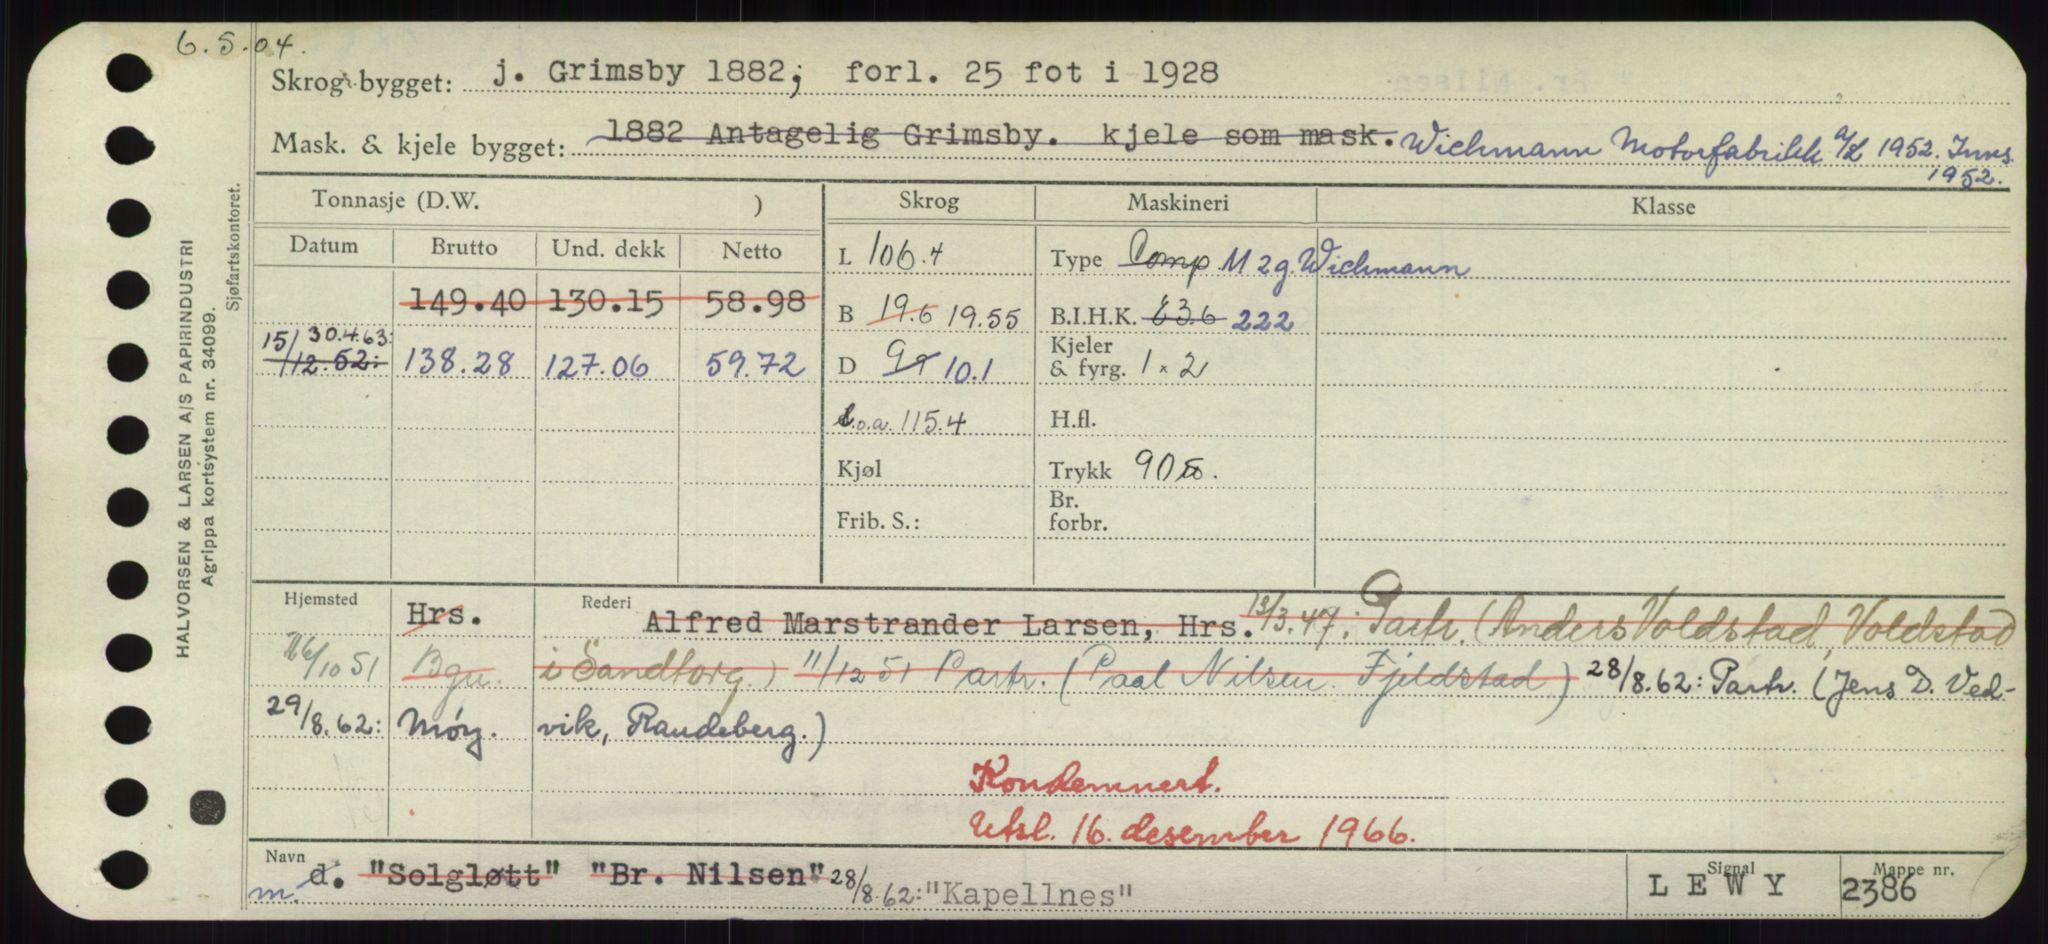 6.5.04.
Skrog bygget: j. Grimsby 1882; forl. 25 fot i 1928
Mask. & kjele bygget: 1882 Antagelig Grimsby. kjele som mask. Wichmann Motorfabrikk a/s 1952. Inns. 1952.
Tonnasje (D.W. ) Skrog Maskineri Klasse
Datum Brutto Und. dekk Netto L 106.4 Type Comp M 2g. Wichmann
149.40 130.15 58.98 B 19.6 19.55 B.I.H.K. 222
15/12.52: 30.4.63: 138.28 127.06 59.72 D 10.1 Kjeler & fyrg. 1 x 2
L.o.a. 115.4 H.fl.
Kjøl Trykk 90
Frib. S.: Br. forbr.
Hjemsted Hrs. Rederi Alfred Marstrander Larsen, Hrs. 13/3.47: Partr. (Anders Voldstad, Voldstad
26/10 51 Bgn. i Sandtorg.) 11/12 51 Partr. (Paal Nilsen Fjeldstad) 28/8.62: Partr. (Jens D. Ved-
29/8.62: Mörg. vik, Raudeberg.)
Kondemnert.
Utsl. 16. desember 1966.
Navn d. m. "Solgløtt" "Br. Nilsen" 28/8.62: "Kapellnes" Signal L E W Y Mappe nr. 2386
HALVORSEN & LARSEN A/S PAPIRINDUSTRI
Agrippa kortsystem nr. 34099.
Sjøfartskontoret.